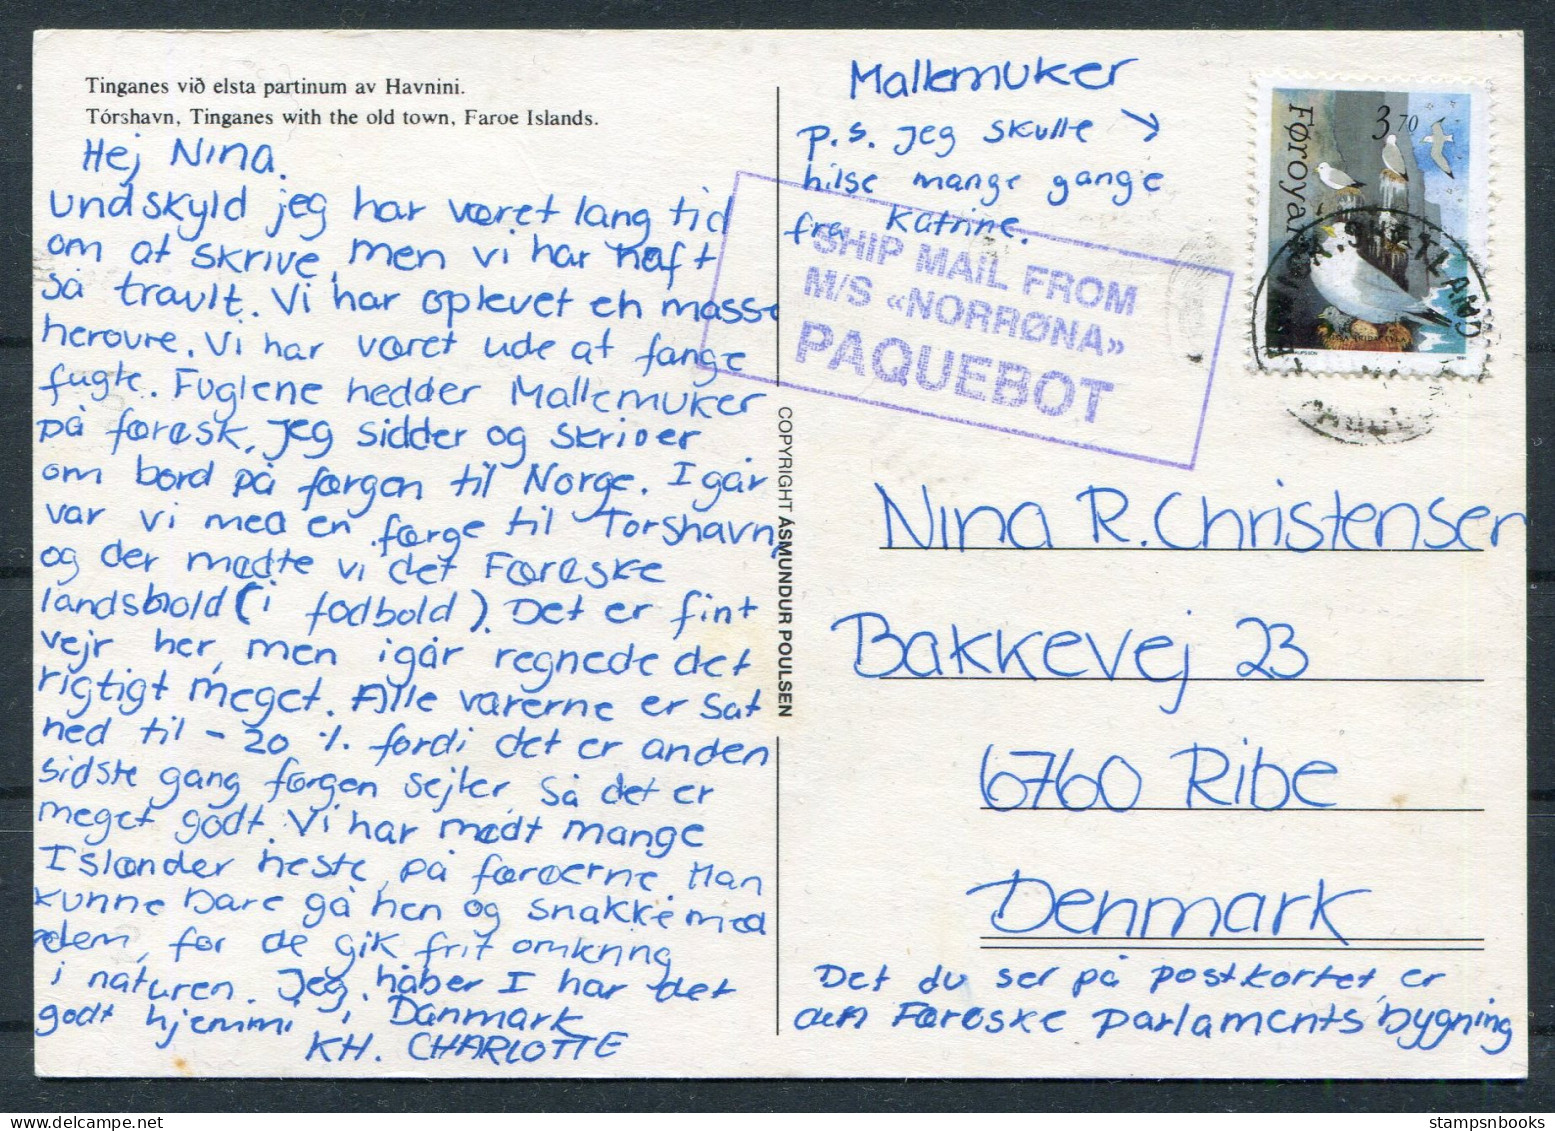 Tinganes við elsta partinum av Havnini.
Tórshavn, Tinganes with the old town, Faroe Islands.
Hej Nina.
undskyld jeg har været lang tid
om at skrive, men vi har haft
så travlt. Vi har oplevet en masse
herovre. Vi har været ude at fange
fugle. Fuglene hedder Mallemuker
på færøsk. Jeg sidder og skriver
om bord på færgen til Norge. I går
var vi med en færge til Torshavn,
og der mødte vi det Færøske
landshold (i fodbold). Det er fint
vejr her, men i går regnede det
rigtigt meget. Alle varerne er sat
ned til - 20 % fordi det er anden
sidste gang færgen sejler, så det er
meget godt. Vi har mødt mange
Islænder heste på færøerne. Man
kunne bare gå hen og snakke med
dem, for de gik frit omkring
i naturen. Jeg håber I har det
godt hjemme i Danmark
KH. CHARLOTTE
COPYRIGHT ÁSMUNDUR POULSEN
Mallemuker
p.s. jeg skulle
hilse mange gange
fra Katrine.
SHIP MAIL FROM
M/S «NORRØNA»
PAQUEBOT
Føroyar
3 70
SHETLAND
Nina R. Christensen
Bakkevej 23
6760 Ribe
Denmark
Det du ser på postkortet, er
den Færøske parlaments bygning
stampsnbooks